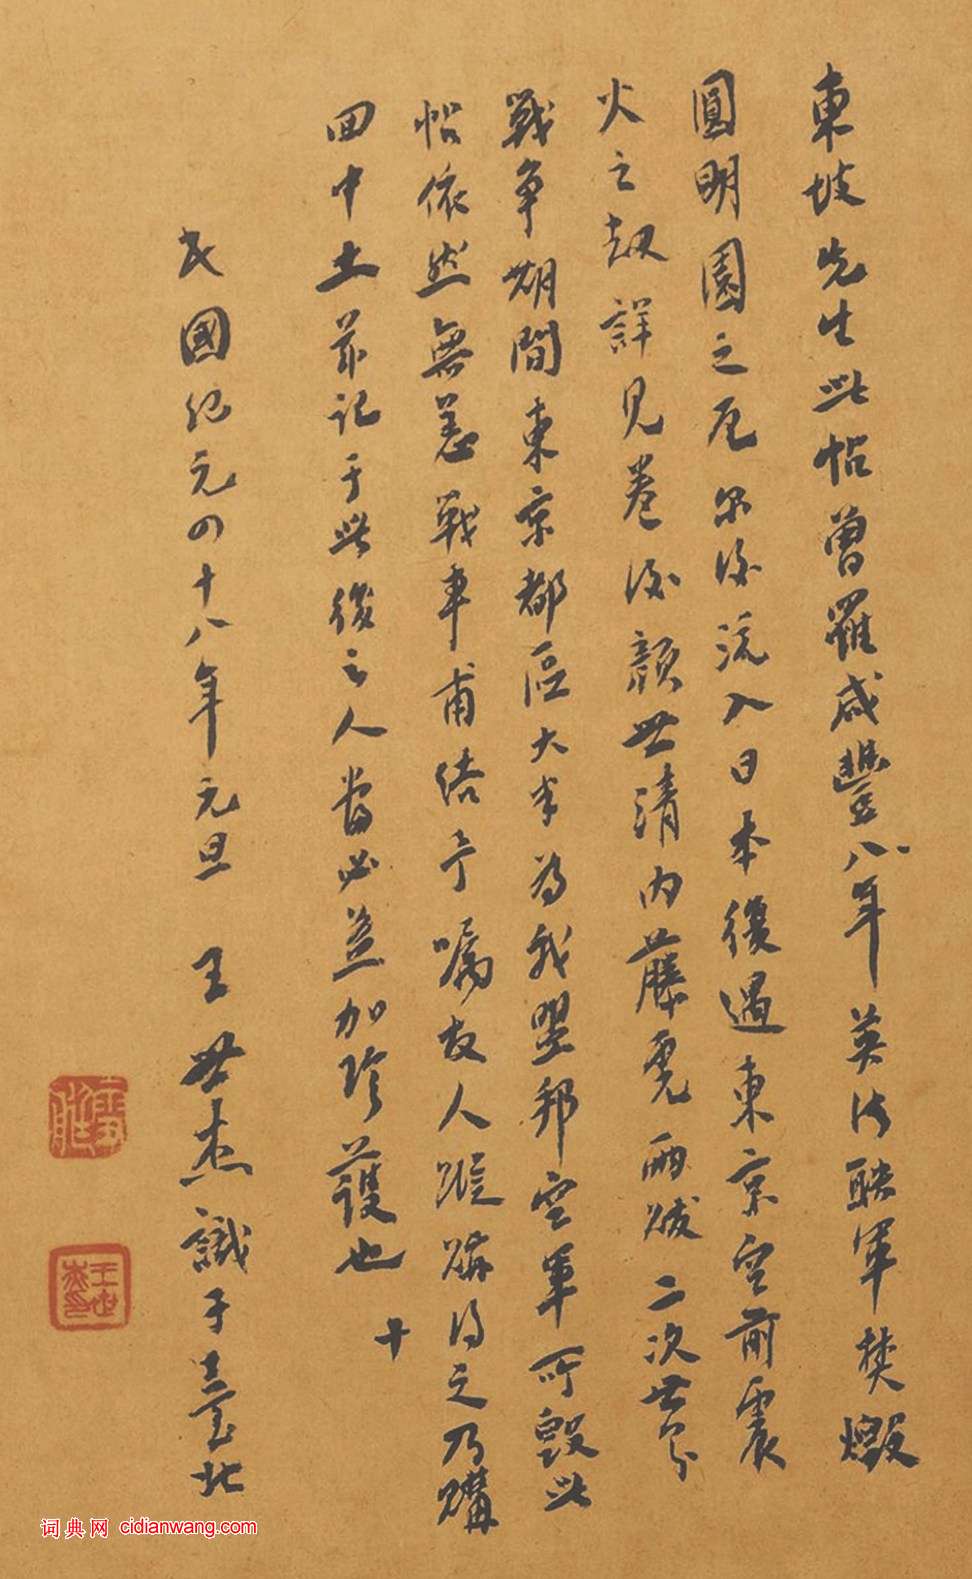 東坡先生此帖曾罹咸豐八年英法聯軍焚燬
圓明園之厄尔後流入日本復遇東京空前震
火之劫詳見卷後顏世清内藤虎兩跋二次世界
戰争期間東京都區大半為我盟邦空軍所毀此
帖依然無恙戰事甫结予嘱友人踪跡得之乃購
回中土并記于此後之人當必益加珍護也
十
民國纪元四十八年元旦　王世杰識于臺北
王世杰印
词典网 cidianwang.com